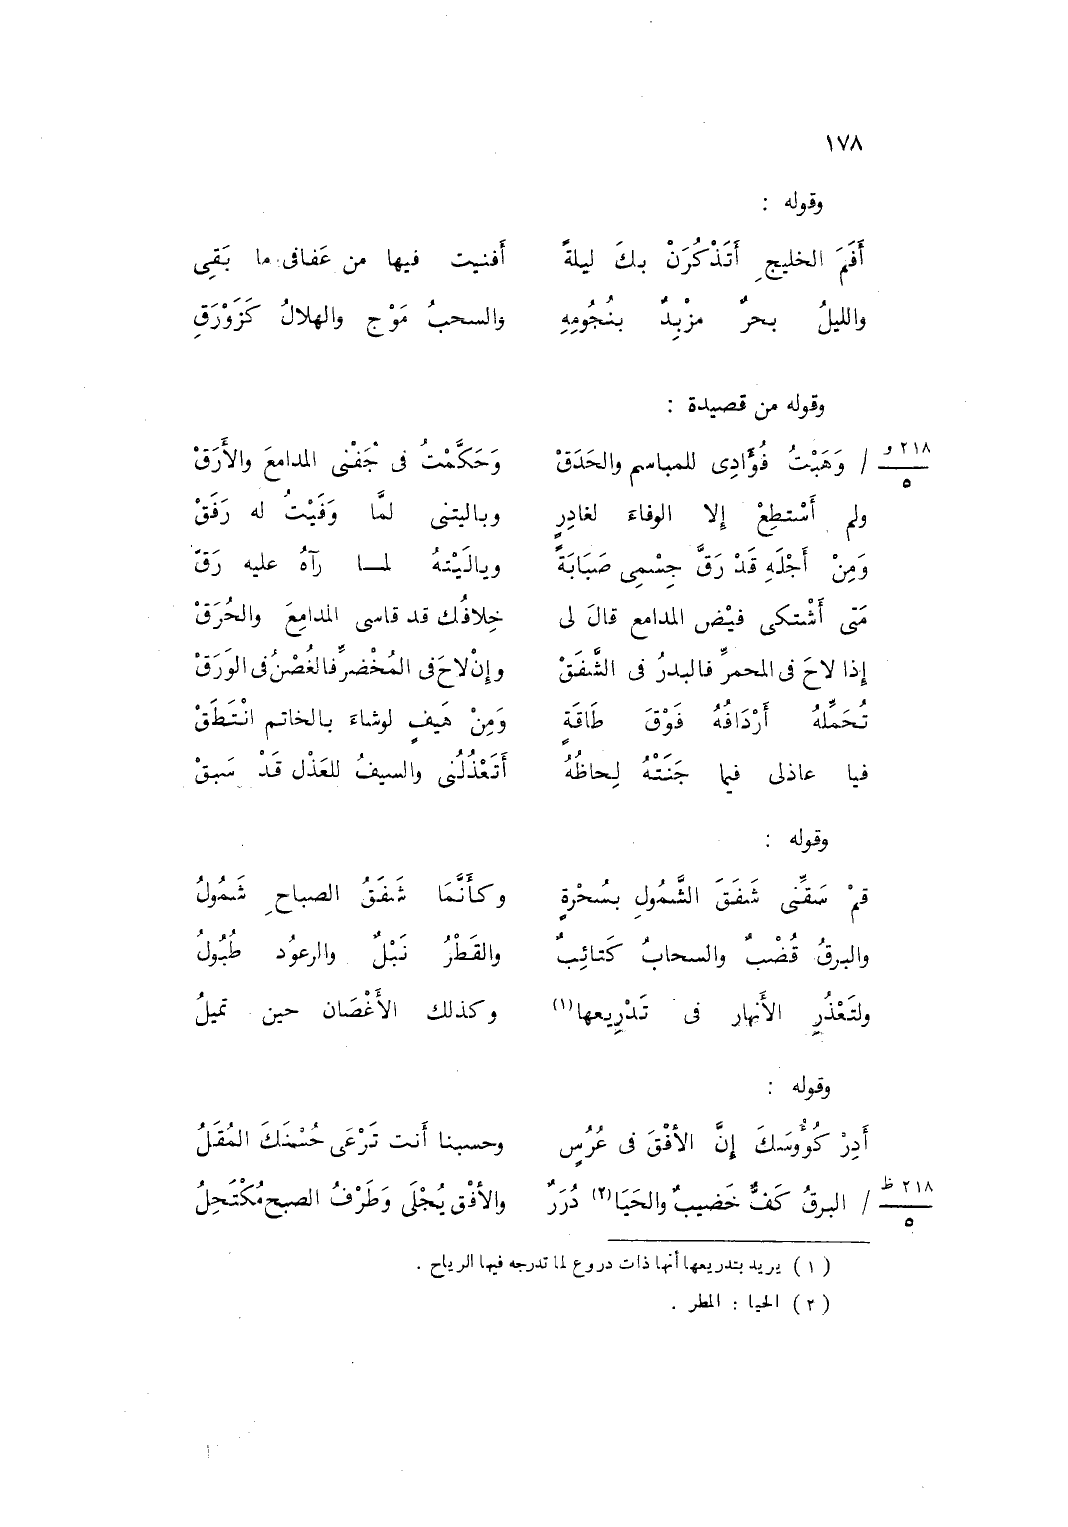 ١٧٨
وقوله :
أَفَمَ الخليجِ أَتَذْكُرَنْ بكَ ليلةً أفنيت فيها من عَفافى ما بَقِى
والليلُ بحرٌ مزْبِدٌ بنُجُومِهِ والسحبُ مَوْج والهلالُ كَزَوْرَقِ
وقوله من قصيدة :
٢١٨ و / ٥ وَهَبْتُ فُؤَادِى للمباسم والحَدَقْ وَحَكَّمْتُ فى جَفْنى المدامعَ والأَرَقْ
ولم أَسْتطِعْ إلا الوفاءَ لغادِرٍ وباليتنى لمَّا وَفَيْتُ له رَفَقْ
وَمِنْ أَجْلَهِ قَدْ رَقَّ جِسْمِى صَبَابَةً وياليْتهُ لمــا رآهُ عليه رَقّ
مَتى أَشْتكى فيْض المدامع قالَ لى خِلافُك قد قاسى المدامِعَ والحُرَقْ
إذا لاحَ فى المحمرِّ فالبدرُ فى الشَّفَقْ وإنْ لاحَ فى المُخْضرِّ فالغُصْنُ فى الوَرَقْ
تُحَمِّلهُ أَرْدَافُهُ فَوْقَ طَاقَةٍ وَمِنْ هَيفٍ لوشاءَ بالخاتم انْتَطَقْ
فيا عاذلى فيما جَنَتْهُ لِحاظُهُ أَتَعْذُلُنى والسيفُ للعَذْل قَدْ سَبقْ
وقوله :
قمْ سَقِّنى شَفَقَ الشَّمُولِ بسُحْرةٍ وكأَنَّمَا شَفَقُ الصباحِ شَمُولُ
والبرقُ قُضْبٌ والسحابُ كَتائِبٌ والقَطْرُ نَبْلٌ والرعوُد طُبُولُ
ولتَعْذُرِ الأَنهار فى تَدْرِيعها(١) وكذلك الأَغْصَان حين تميلُ
وقوله :
أَدِرْ كُؤُوسَكَ إِنَّ الأفْقَ فى عُرُسٍ وحسبنا أَنت تَرْعَى حُسْنَكَ المُقَلُ
٢١٨ ظ / ٥ البرقُ كَفٌّ خَضيبٌ والحَيَا(٢) دُرَرٌ والأفْق يُجْلَى وَطَرْفُ الصبح مُكْتَحِلُ
(١) يريد بتدريعها أنها ذات دروع لما تدرجه فيها الرياح .
(٢) الحيا : المطر .